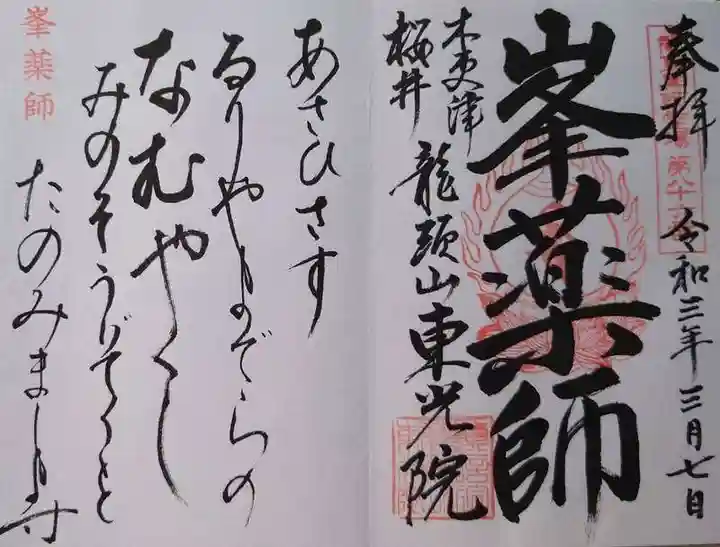 奉拝
令和三年三月七日
峯薬師
木更津
桜井
龍頭山東光院
あさひさす
るりやまでらの
なむやくし
みのそうびょうこと
たのみまし
峯薬師